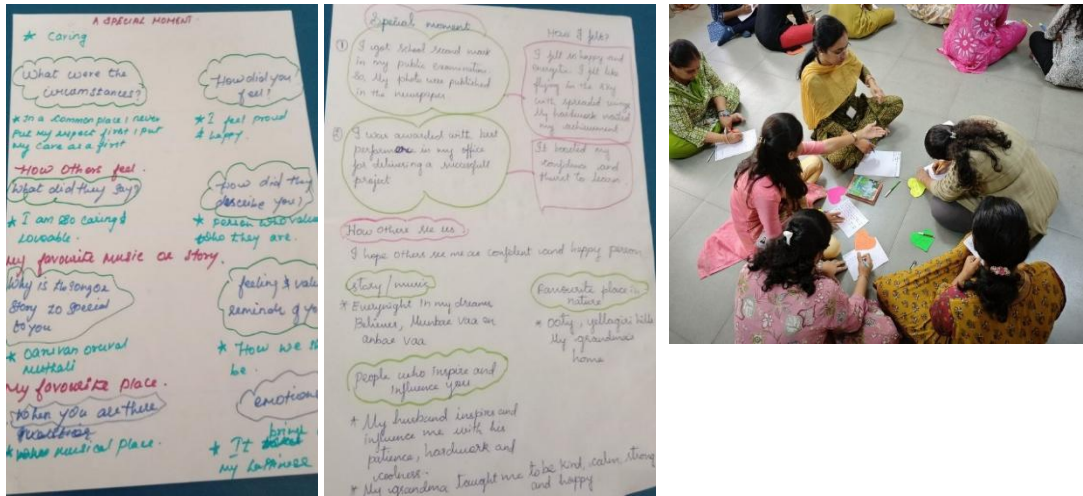 A SPECIAL MOMENT.
* Caring
What were the
circumstances?
* In a common place I never
put my aspect first I put
my care as a first
How did you
feel?
* I feel proud
& happy.
How others feel.
What did they say?
* I am so caring &
loveable.
how did they
describe you?
* person who value
who they are.
My favourite music or story.
Why is the song or
story so special
to you
* Oruvan oruvan
muthali
feeling & value
reminds of you
* How we
be.
My favourite place.
When you are there
* musical place.
emotions
bring
* It
my happiness
Special moment
① I got school second mark
in my public examination
So My photo were published
in the newspaper
② I was awarded with best
performer in my office
for delivering a successfull
project
How I felt?
I felt so happy and
energetic. I felt like
flying in the sky
with spreaded wings
My hardwork
my achievement
It boosted my
confidence and
thirst to learn.
How others see us
I hope others see me as confident and happy person
story/music
* Everynight in my dreams
Believer, Munbae vaa en
anbae vaa
Favourite place in
nature
* Ooty, yellagiri hills
My grandma's
home
People who inspire and
influence you
* My husband inspire and
influence me with his
patience, hardwork and
coolness.
* My grandma taught me to be kind, calm, strong
and happy